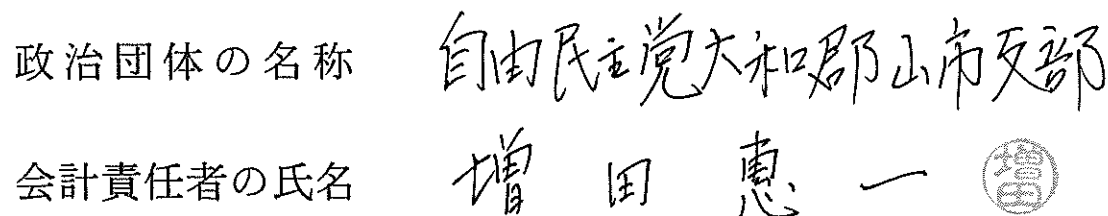 政治団体の名称 自由民主党大和郡山市支部
会計責任者の氏名 増田 惠一 増田